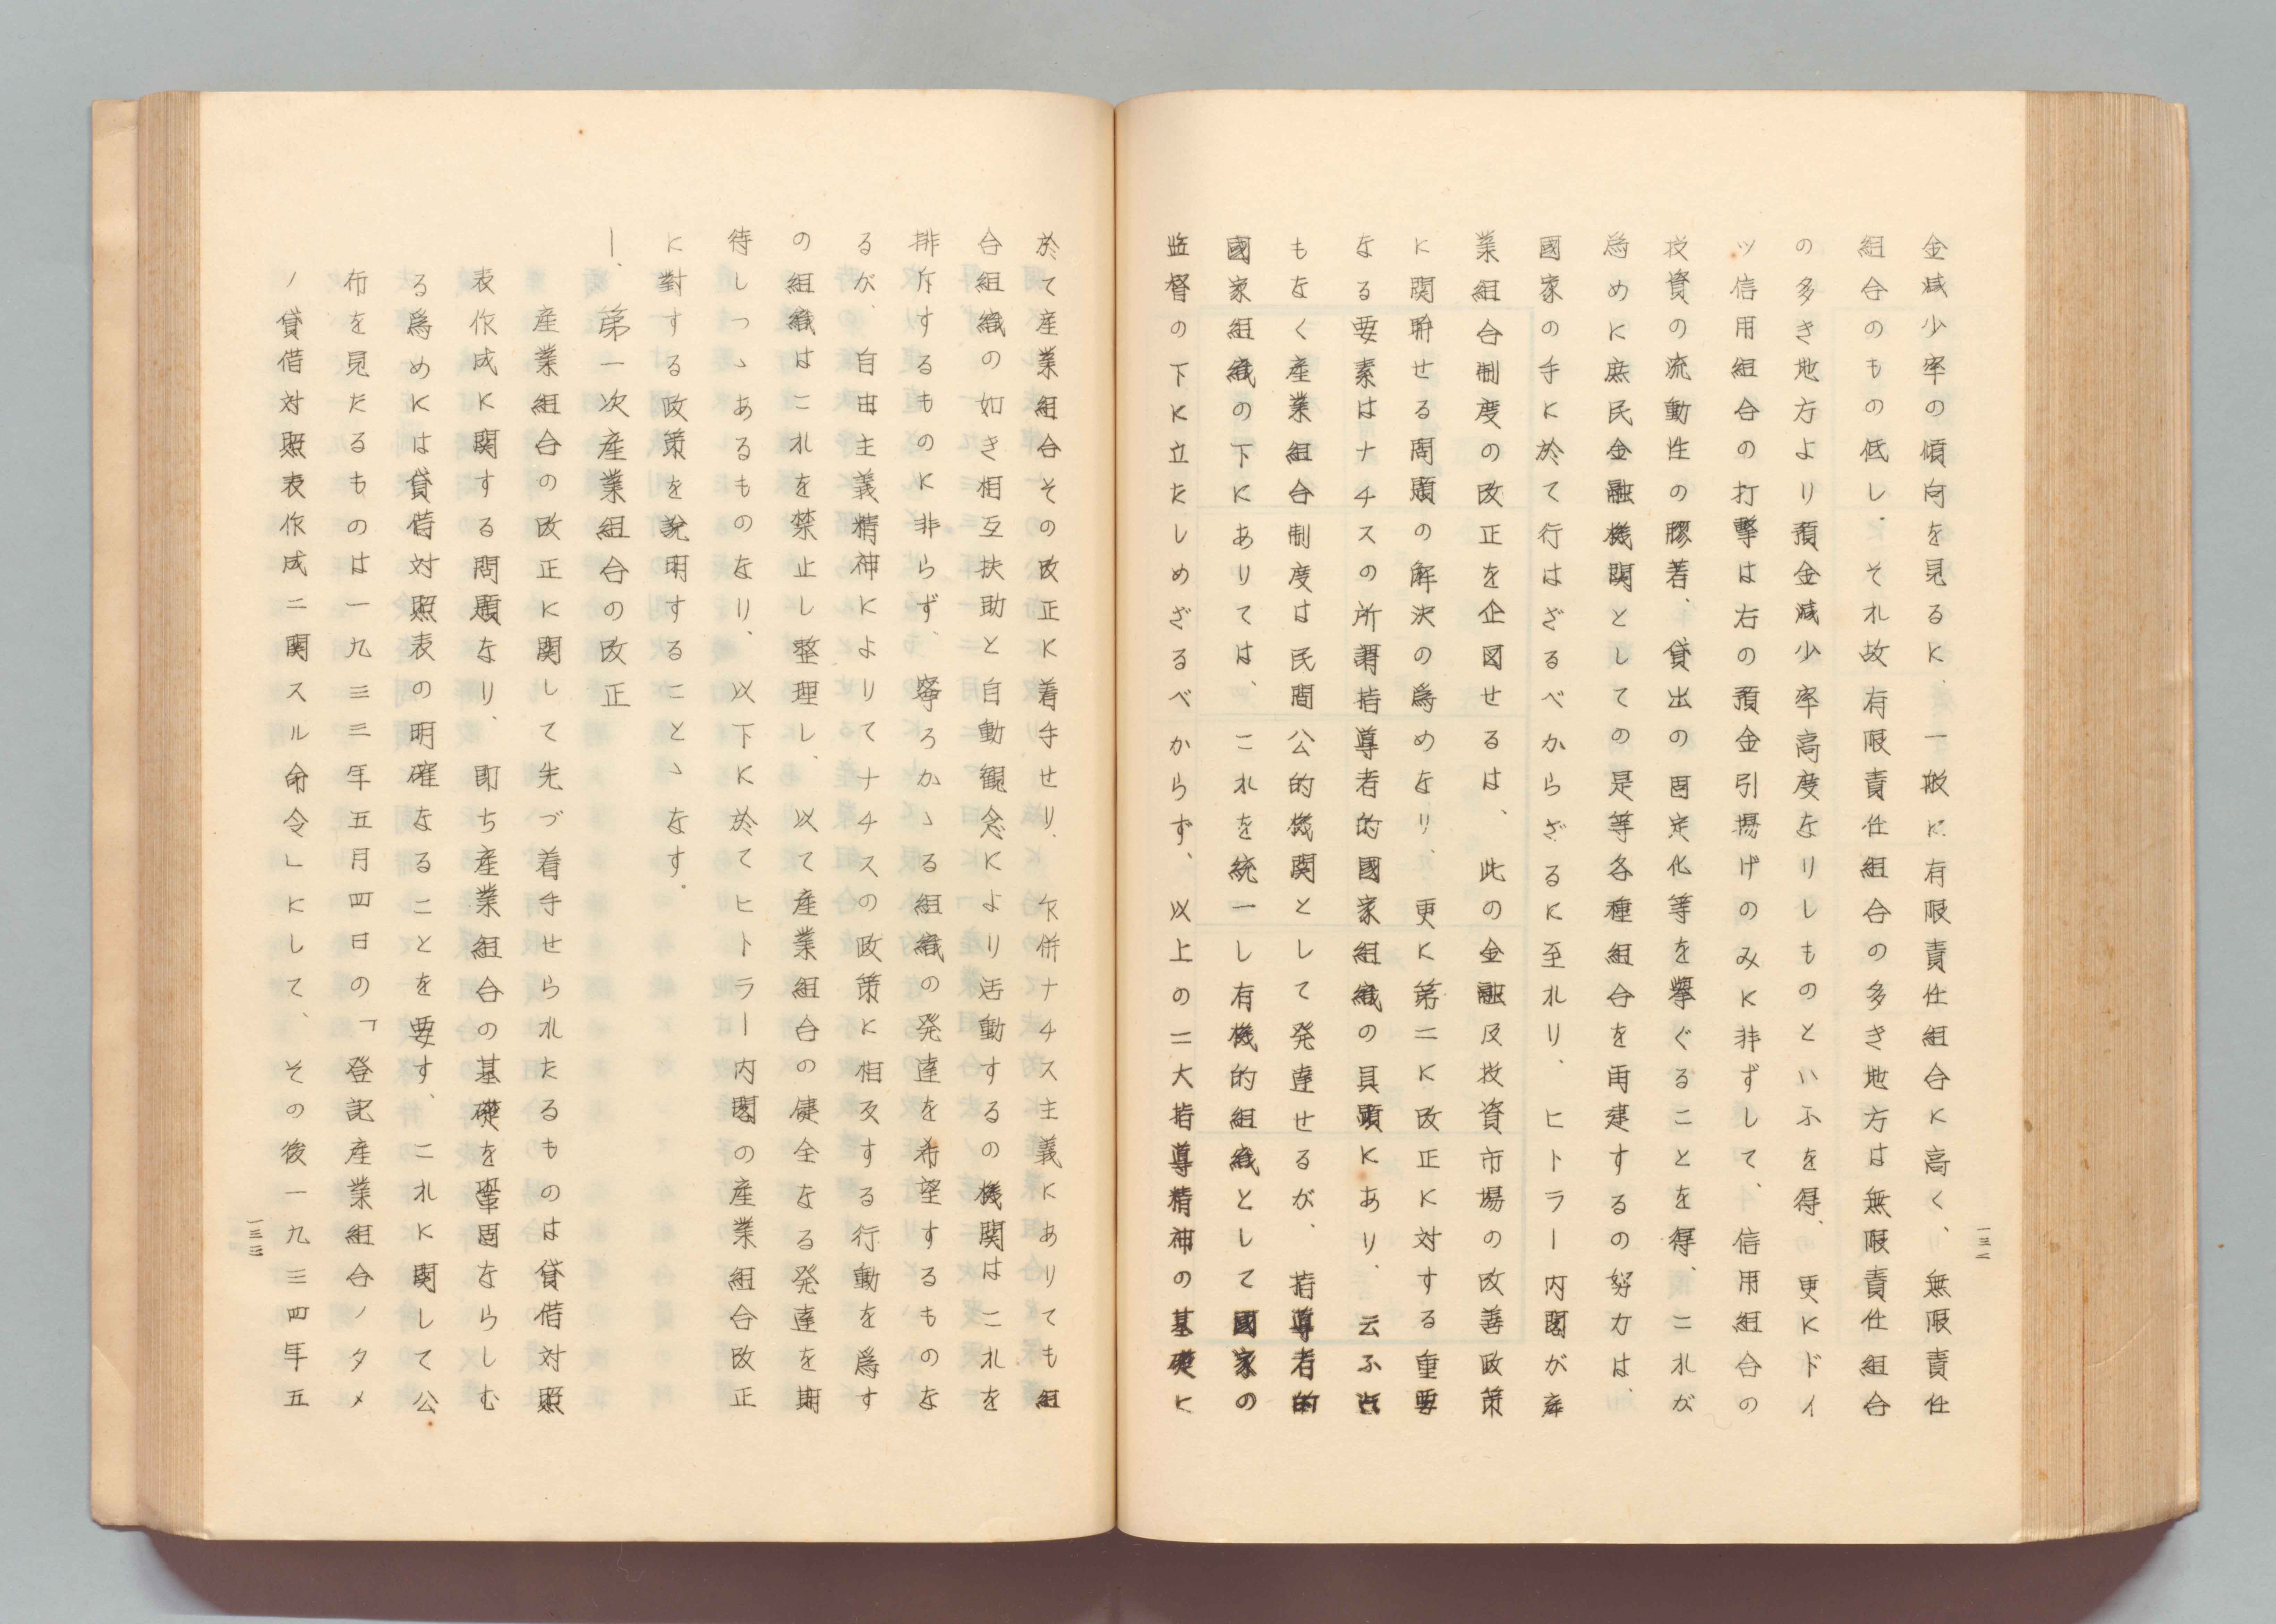 金減少率の傾向を見るに、一般に有限責任組合に高く、無限責任
組合のもの低し。それ故有限責任組合の多き地方は無限責任組合
の多き地方より預金減少率高度なりしものといふを得、更にドイ
ツ信用組合の打撃は右の預金引揚げのみに非ずして、信用組合の
投資の流動性の膠着、貸出の固定化等を擧ぐることを得、これが
為めに庶民金融機関としての是等各種組合を再建するの努力は、
國家の手に於て行はざるべからざるに至れり、ヒトラー内閣が産
業組合制度の改正を企図せるは、此の金融及投資市場の改善政策
に関聯せる問題の解決の為めなり、更に第二に改正に対する重要
なる要素はナチスの所謂指導者的國家組織の具顕にあり、云ふ迄
もなく産業組合制度は民間公的機関として発達せるが、指導者的
國家組織の下にありては、これを統一し有機的組織として國家の
監督の下に立たしめざるべからず、以上の二大指導精神の基礎に
一三一
於て産業組合その改正に着手せり、欠併ナチス主義にありても組
合組織の如き相互扶助と自動観念により活動するの機関はこれを
排斥するものに非らず、寧ろかゝる組織の発達を希望するものな
るが、自由主義精神によりてナチスの政策に相反する行動を為す
の組織はこれを禁止し整理し、以て産業組合の健全なる発達を期
待しつゝあるものなり、以下に於てヒトラー内閣の産業組合改正
に對する政策を説明することゝなす。
一、第一次産業組合の改正
産業組合の改正に関して先づ着手せられたるものは貸借対照
表作成に関する問題なり、即ち産業組合の基礎を鞏固ならしむ
る為めには貸借対照表の明確なることを要す、これに関して公
布を見たるものは一九三三年五月四日の「登記産業組合ノタメ
ノ貸借対照表作成ニ関スル命令」にして、その後一九三四年五
一三三